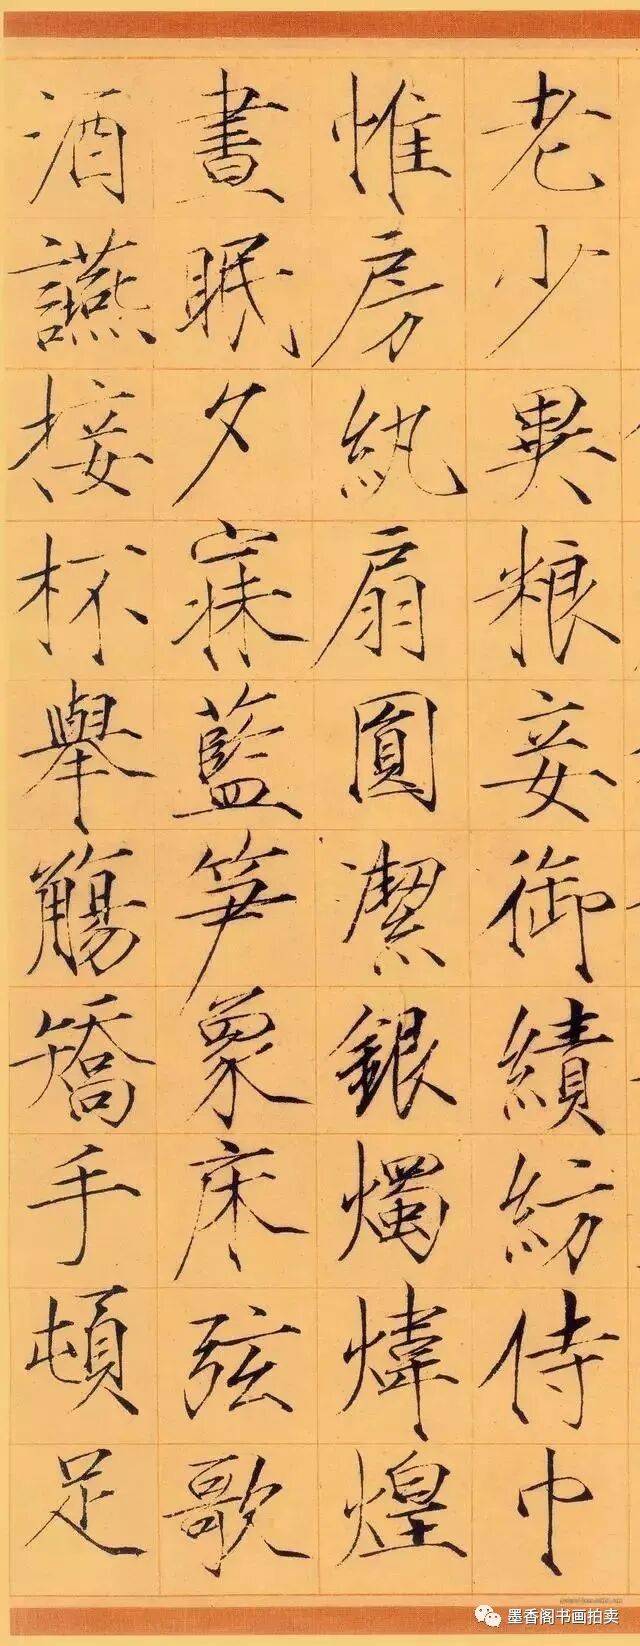 老少異粮妾御績紡侍巾
帷房紈扇圓潔銀燭煒煌
晝眠夕寐藍笋象床弦歌
酒讌接杯舉觴矯手頓足
墨香阁书画拍卖